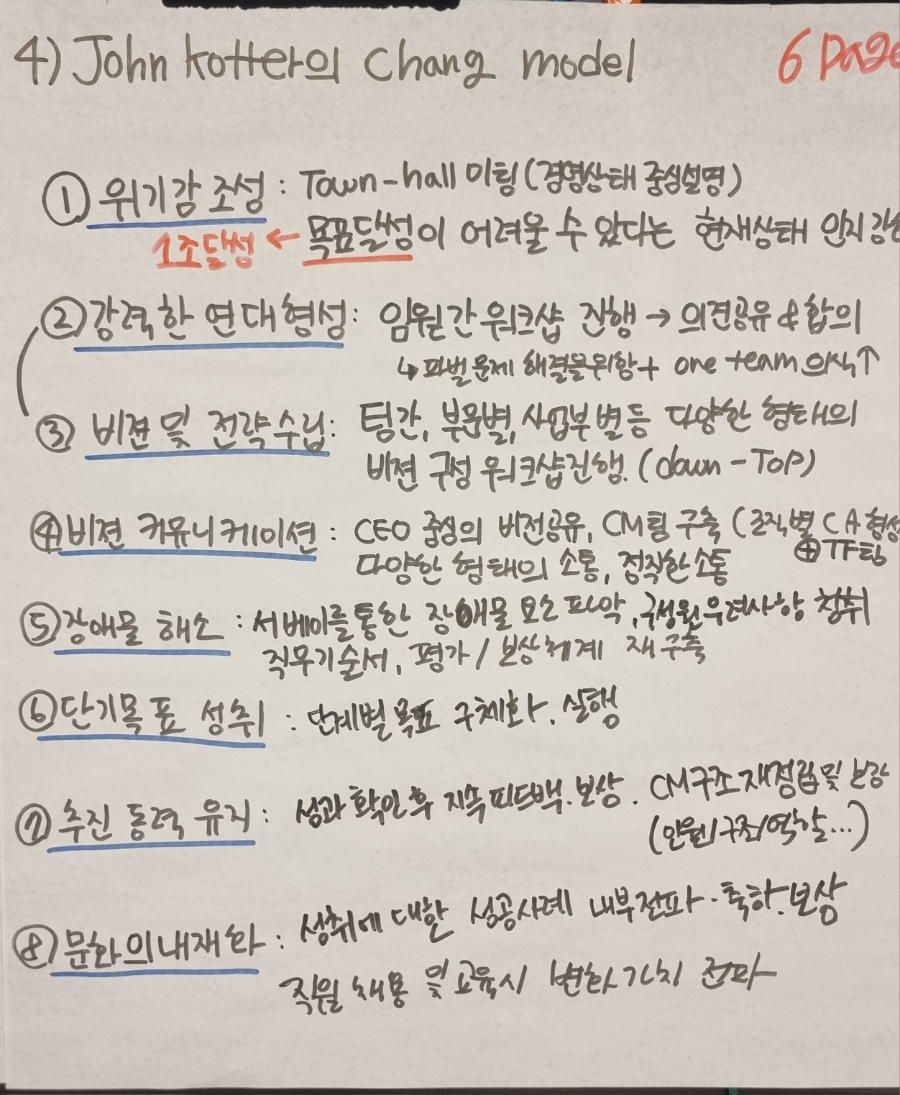 4) John Kotter의 Chang model
6 Page
① 위기감 조성 : Town-hall 미팅 (경영상태 중심설명)
1조달성 ← 목표달성이 어려울 수 있다는 현재상태 인지
② 강력한 연대형성 : 임원간 워크샵 진행 → 의견공유 & 합의
↳ 파벌문제 해결을위함 + one team 의식↑
③ 비젼 및 전략수립 : 팀간, 부문별, 사업부별등 다양한 형태의
비젼 구성 워크샵진행. (down-Top)
④ 비젼 커뮤니케이션 : CEO 중심의 비전공유, CM팀 구축 (조직별 CA형성
⊕ TF팀
다양한 형태의 소통, 정직한소통
⑤ 장애물 해소 : 서베이를통한 장애물 요소 파악, 구성원우려사항 청취
직무기술서, 평가/보상체계 재구축
⑥ 단기목표 성취 : 단계별 목표 구체화. 실행
⑦ 추진 동력 유지 : 성과 확인 후 지속 피드백. 보상. CM구조재정립및 보강
(인원/구조/역할...)
⑧ 문화의내재화 : 성취에 대한 성공사례 내부전파. 축하. 보상
직원 채용 및 교육시 변화가치 전파